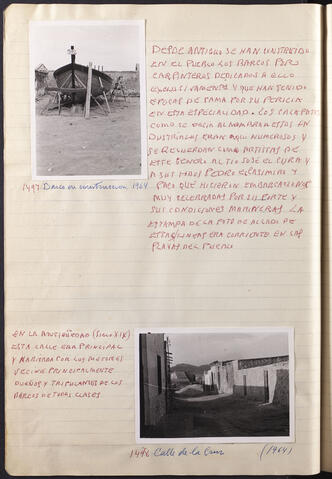 DESDE ANTIGUO SE HAN CONSTRUIDO
EN EL PUEBLO LOS BARCOS POR
CARPINTEROS DEDICADOS A ELLO
EXCLUSIVAMENTE Y QUE HAN TENIDO
EPOCAS DE FAMA POR SU PERICIA
EN ESTA ESPECIALIDAD. LOS CALAFATES
COMO SE DECIA AL NOMBRAR ESTOS IN
DUSTRIALES ERAN MUY NUMEROSOS Y
SE RECUERDAN COMO ARTISTAS DE
ESTE GENERO AL TIO JOSE EL CURA Y
A SUS HIJOS PEDRO CASIMIRO Y
PACO QUE HICIERON EMBARCACIONES
MUY CELEBRADAS POR SU PORTE Y
SUS CONDICIONES MARINERAS. LA
ESTAMPA DE LA FOTO DE AL LADO DE
ESTAS LINEAS ERA CORRIENTE EN LAS
PLAYAS DEL PUEBLO
1497 Barco en construccion 1964
EN LA ANTIGÜEDAD (SIGLO XIX)
ESTA CALLE ERA PRINCIPAL
Y HABITADA POR LOS MEJORES
VECINOS PRINCIPALMENTE
DUEÑOS Y TRIPULANTES DE LOS
BARCOS DE TODAS CLASES
1496 Calle de la Cruz (1964)